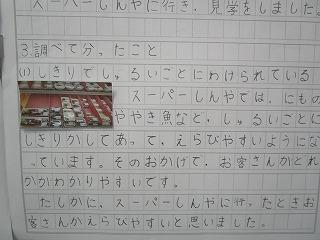 スーパーしんやに行き、見学をしました。
3.調べて分ったこと
(1)しきりでしゅるいごとにわけられている
スーパーしんやでは、にもの
ややき魚など、しゅるいごとに
しきりがしてあって、えらびやすいようにな
っています。そのおかげで、お客さんがどれ
がわかりやすいです。
たしかに、スーパーしんやに行ったときお
客さんがえらびやすいと思いました。